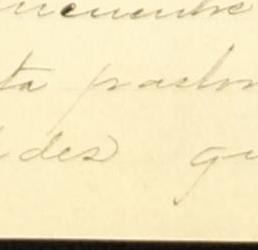 ncuentre
ta pastor
des qu